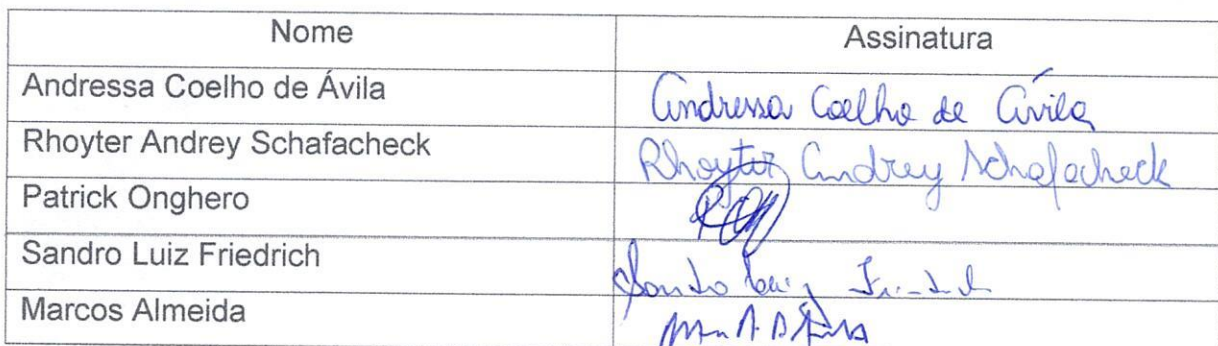 Nome Assinatura
Andressa Coelho de Ávila Andressa Coelho de Ávila
Rhoyter Andrey Schafacheck Rhoyter Andrey Schafacheck
Patrick Onghero
Sandro Luiz Friedrich Sandro Luiz
Marcos Almeida